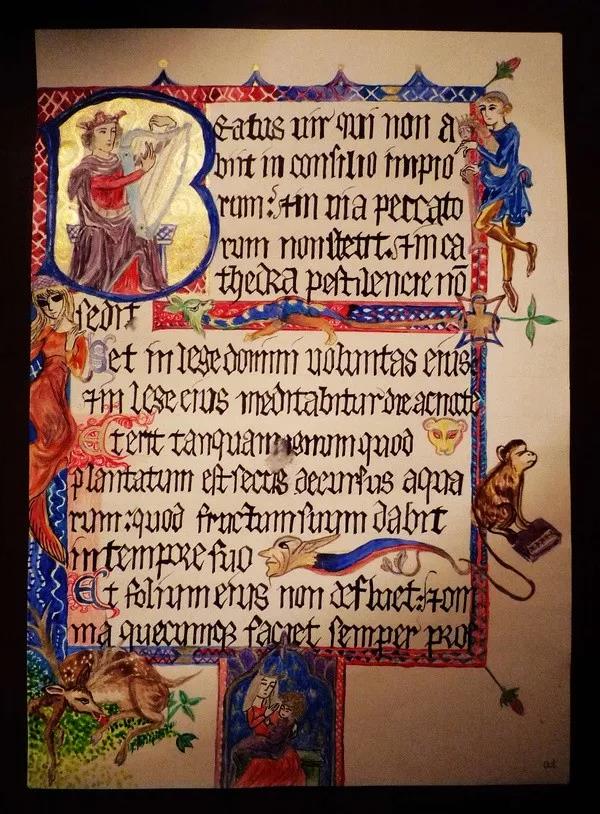 Beatus vir qui non a
biit in consilio impio
rum: ⁊ in via peccato
rum non stetit. ⁊ in ca
thedra pestilencie nō
sedit
Set in lege domini voluntas eius
⁊ in lege eius meditabitur die ac nocte
Et erit tanquam lignum quod
plantatum est secus decursus aqua
rum: quod fructum suum dabit
in tempre suo
Et folium eius non defluet: ⁊ om
nia quecumqꝫ faciet semper pros